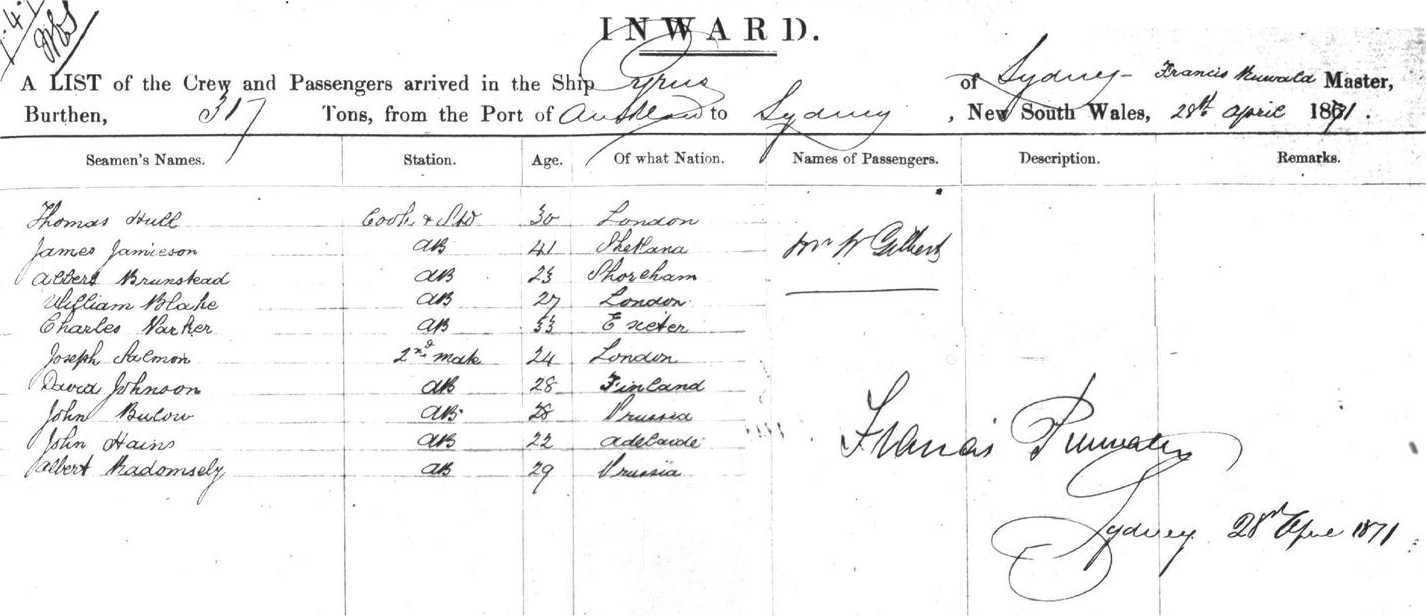 INWARD.
A LIST of the Crew and Passengers arrived in the Ship Cyrus of Sydney Francis Master,
Burthen, 317 Tons, from the Port of to Sydney, New South Wales, 28th April 1871.
Seamen's Names. Station. Age. Of what Nation. Names of Passengers. Description. Remarks.
Thomas Hull Cook & Std 30 London
James Jamieson AB 41 Shetland Mr W Gilbert
Albert Brunstead AB 23 Shoreham
William Blake AB 27 London
Charles Parker AB 33 Exeter
Joseph Salmon 2nd mate 24 London
David Johnson AB 28 Finland
John Bulow AB 28 Prussia
John Hains AB 22 Adelaide
Albert Radomsely AB 29 Prussia
Francis
Sydney 28th April 1871